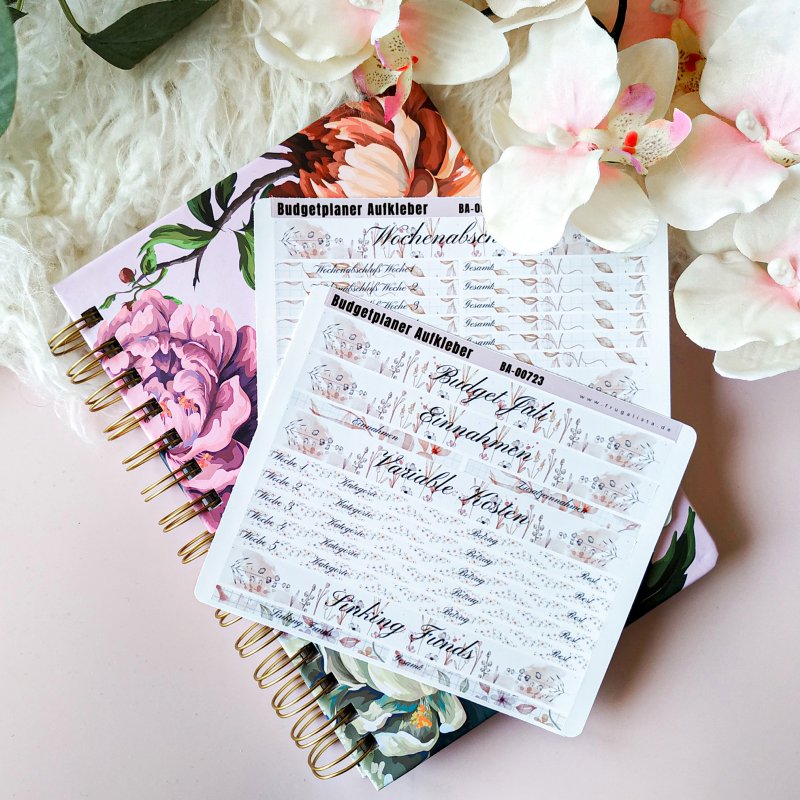 Budgetplaner Aufkleber
Wochenabsch
Wochenabschluß Woche 1 Gesamt
Woche 2 Gesamt
Woche 3 Gesamt
Gesamt
Gesamt
Budgetplaner Aufkleber BA-00723
www.frugalista.de
Budget Juli
Einnahmen
Einnahmen
Variable Kosten
Woche 1 Kategorie Betrag Rest
Woche 2 Kategorie Betrag Rest
Woche 3 Kategorie Betrag Rest
Woche 4 Kategorie Betrag Rest
Woche 5 Kategorie Betrag Rest
Sinking Funds
Sinking Funds Gesamt